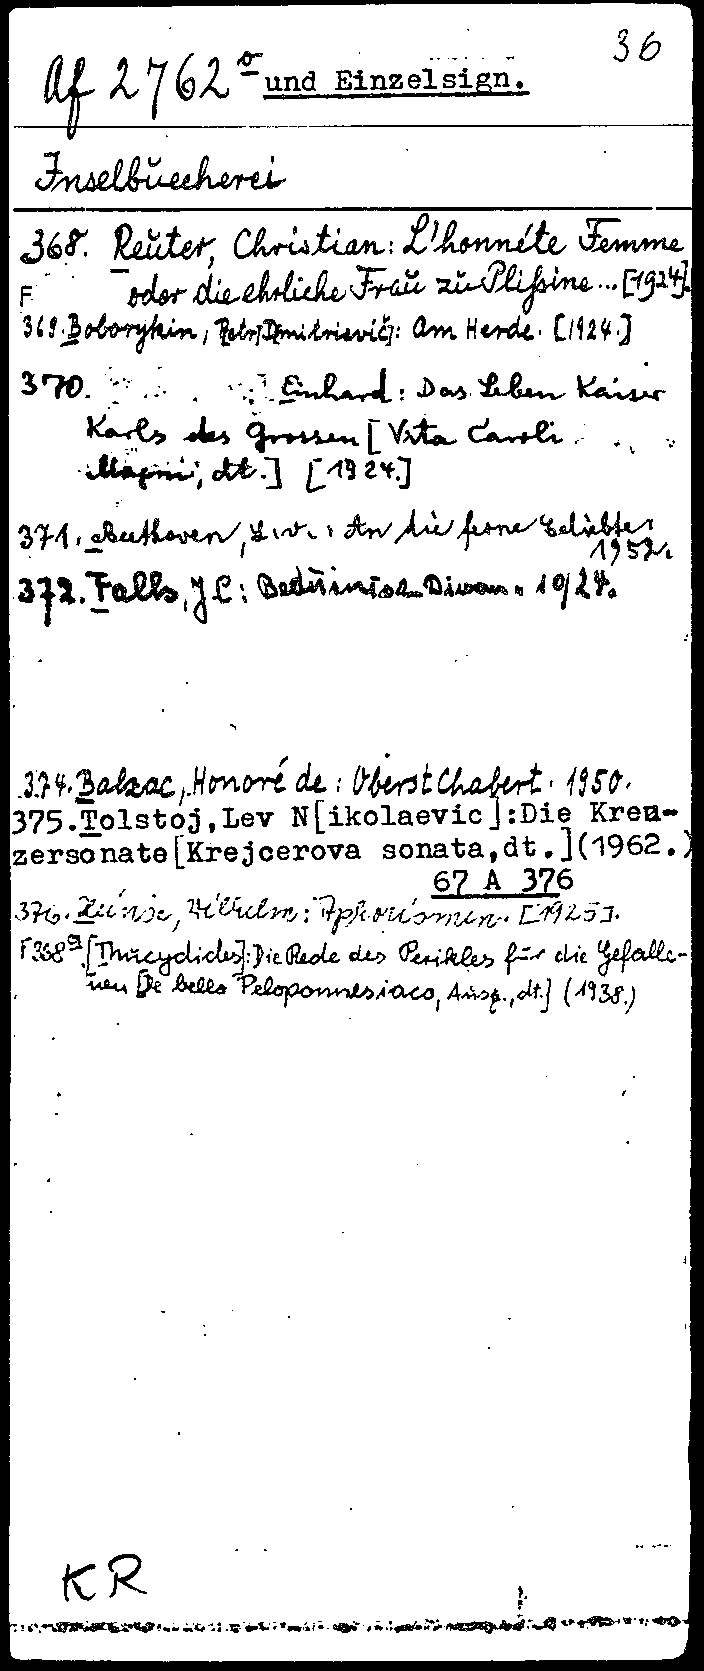 36
Af 2762 o und Einzelsign.
Inselbuecherei
368. Reuter, Christian: L'honnéte Femme
F oder die ehrliche Frau zu Plißine... [1924].
369. Boborykin, Petr [Dmitrievič]: Am Herde. [1924.]
370. Einhard: Das Leben Kaiser
Karls des Grossen [Vita Caroli
Magni, dt.] [1924.]
371. Beethoven, L. v.: An die ferne Geliebte.
1952.
372. Falls, J C: Beduinen-Diwan. 1924.
374. Balzac, Honoré de: Oberst Chabert. 1950.
375.Tolstoj,Lev N[ikolaevic]:Die Kreu-
zersonate[Krejcerova sonata,dt.](1962.)
67 A 376
376. Heinse, Wilhelm: Aphorismen. [1925].
F 368a. [Thucydides]: Die Rede des Perikles für die Gefalle-
nen [De bello Peloponnesiaco, Ausz., dt.] (1938.)
KR